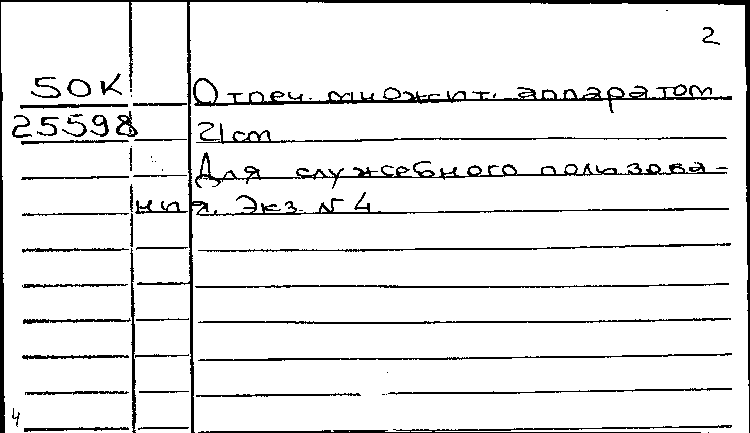 2
50К Отпеч. множит. аппаратом
25598 21 cm
Для служебного пользова-
ния. Экз. № 4.
4